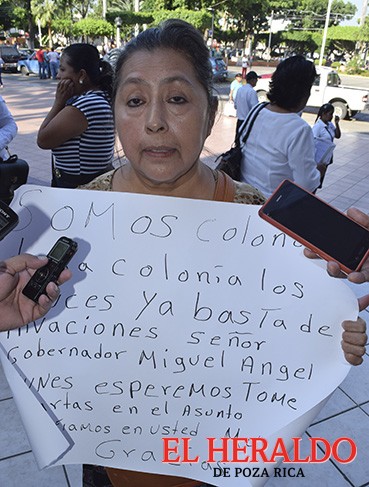 Somos colono
a colonia los
ces ya basta de
nvaciones señor
Gobernador Miguel Angel
unes esperemos Tome
rtas en el Asunto
iamos en usted
Gracias
EL HERALDO
DE POZA RICA